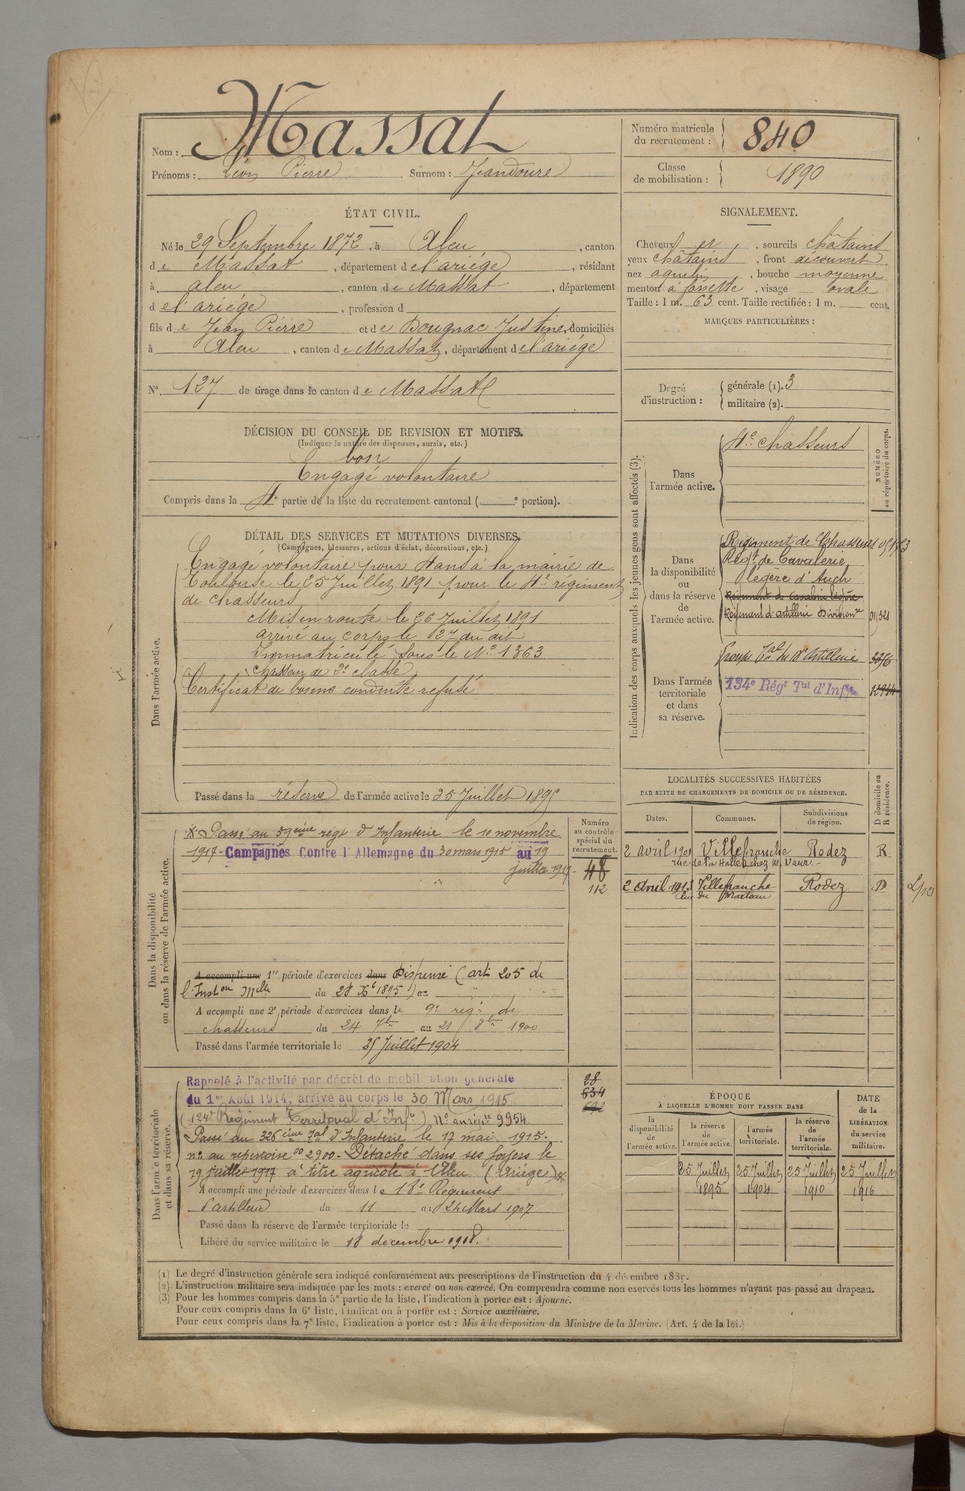 Nom : Massat
Prénoms : Léon Pierre Surnom : Jeandoure
Numéro matricule du recrutement : 840
Classe de mobilisation : 1890
ÉTAT CIVIL.
Né le 29 Septembre 1872, à Aleu, canton
de Massat, département de l'ariége, résidant
à aleu, canton de Massat, département
de l'ariége, profession d
fils de Jean Pierre et de Dougnac Justine, domiciliés
à Aleu, canton de Massat, département de l'ariége
N° 127 de tirage dans le canton de Massat
SIGNALEMENT.
Cheveux et, sourcils châtains
yeux châtains, front découvert
nez aquilin, bouche moyenne
menton à fossette, visage ovale
Taille : 1 m. 63 cent. Taille rectifiée : 1 m. cent.
MARQUES PARTICULIÈRES :
Degré d'instruction : générale (1). 3
militaire (2).
DÉCISION DU CONSEIL DE REVISION ET MOTIFS.
(Indiquer la nature des dispenses, sursis, etc.)
bon
Engagé volontaire
Compris dans la 4e partie de la liste du recrutement cantonal ( e portion).
DÉTAIL DES SERVICES ET MUTATIONS DIVERSES.
(Campagnes, blessures, actions d'éclat, décorations, etc.)
Dans l'armée active.
Engagé volontaire pour 4 ans à la mairie de
Toulouse le 25 Juillet 1891 pour le régiment
de chasseurs
Mis en route le 26 Juillet 1891
arrivé au corps le 27 du dit
Immatriculé sous le N° 1363
chasseur de 2e classe
Certificat de bonne conduite refusé
Passé dans la réserve de l'armée active le 25 Juillet 1895
Indication des corps auxquels les jeunes gens sont affectés (3).
NUMÉRO au répertoire du corps.
Dans l'armée active.
chasseurs
Dans la disponibilité ou dans la réserve de l'armée active.
Régiment de Chasseurs
Régt de Cavalerie
légère d'Auch
Régiment de cavalerie légère
Régiment d'artillerie Divisionre
Dans l'armée territoriale et dans sa réserve.
Groupe d'Artillerie
134e Régt Tial d'Inf.
LOCALITÉS SUCCESSIVES HABITÉES
PAR SUITE DE CHANGEMENTS DE DOMICILE OU DE RÉSIDENCE.
Dates. Communes. Subdivisions de région. D domicile ou R résidence.
2 avril Villefranche Rodez R
2 avril Villefranche Rodez D
Dans la disponibilité ou dans la réserve de l'armée active.
Numéro au contrôle spécial du recrutement.
48
112
Passé au 59ème régt d'Infanterie le 10 novembre
1917. Campagnes Contre l'Allemagne du 30 mars 1915 au 19
juillet 1917
A accompli une 1re période d'exercices dans Dispensé (art. 205 de
l'Inston Mlle du 28 Xbre 1895) au
A accompli une 2e période d'exercices dans le 9e régt de
chasseurs du 24 7bre au 21 8bre 1900
Passé dans l'armée territoriale le 25 Juillet 1904
Dans l'armée territoriale et dans sa réserve.
28
634
Rappelé à l'activité par décret de mobilisation générale
du 1er Août 1914, arrivé au corps le 30 Mars 1915
(124e Régiment Territorial d'Infie) N° au régie 9954
Passé au 326ème Tal d'Infanterie le 17 mai 1915.
n° au répertoire 2900. Détaché dans ses foyers le
19 juillet 1917 à titre agricole à Aleu (Ariège)
A accompli une période d'exercices dans le 18e Régiment
d'artillerie du 11 au 24 Mars 1907
Passé dans la réserve de l'armée territoriale le
Libéré du service militaire le 18 décembre 1918.
ÉPOQUE
A LAQUELLE L'HOMME DOIT PASSER DANS
la disponibilité de l'armée active. la réserve de l'armée active. l'armée territoriale. la réserve de l'armée territoriale.
DATE de la LIBÉRATION du service militaire.
25 Juillet 1895 25 Juillet 1904 25 Juillet 1910 25 Juillet 1916
(1) Le degré d'instruction générale sera indiqué conformément aux prescriptions de l'instruction du 4 décembre
(2) L'instruction militaire sera indiquée par les mots : exercé ou non exercé. On comprendra comme non exercés tous les hommes n'ayant pas passé au drapeau.
(3) Pour les hommes compris dans la 5e partie de la liste, l'indication à porter est : Ajourné.
Pour ceux compris dans la 6e liste, l'indication à porter est : Service auxiliaire.
Pour ceux compris dans la 7e liste, l'indication à porter est : Mis à la disposition du Ministre de la Marine. (Art. 4 de la loi.)